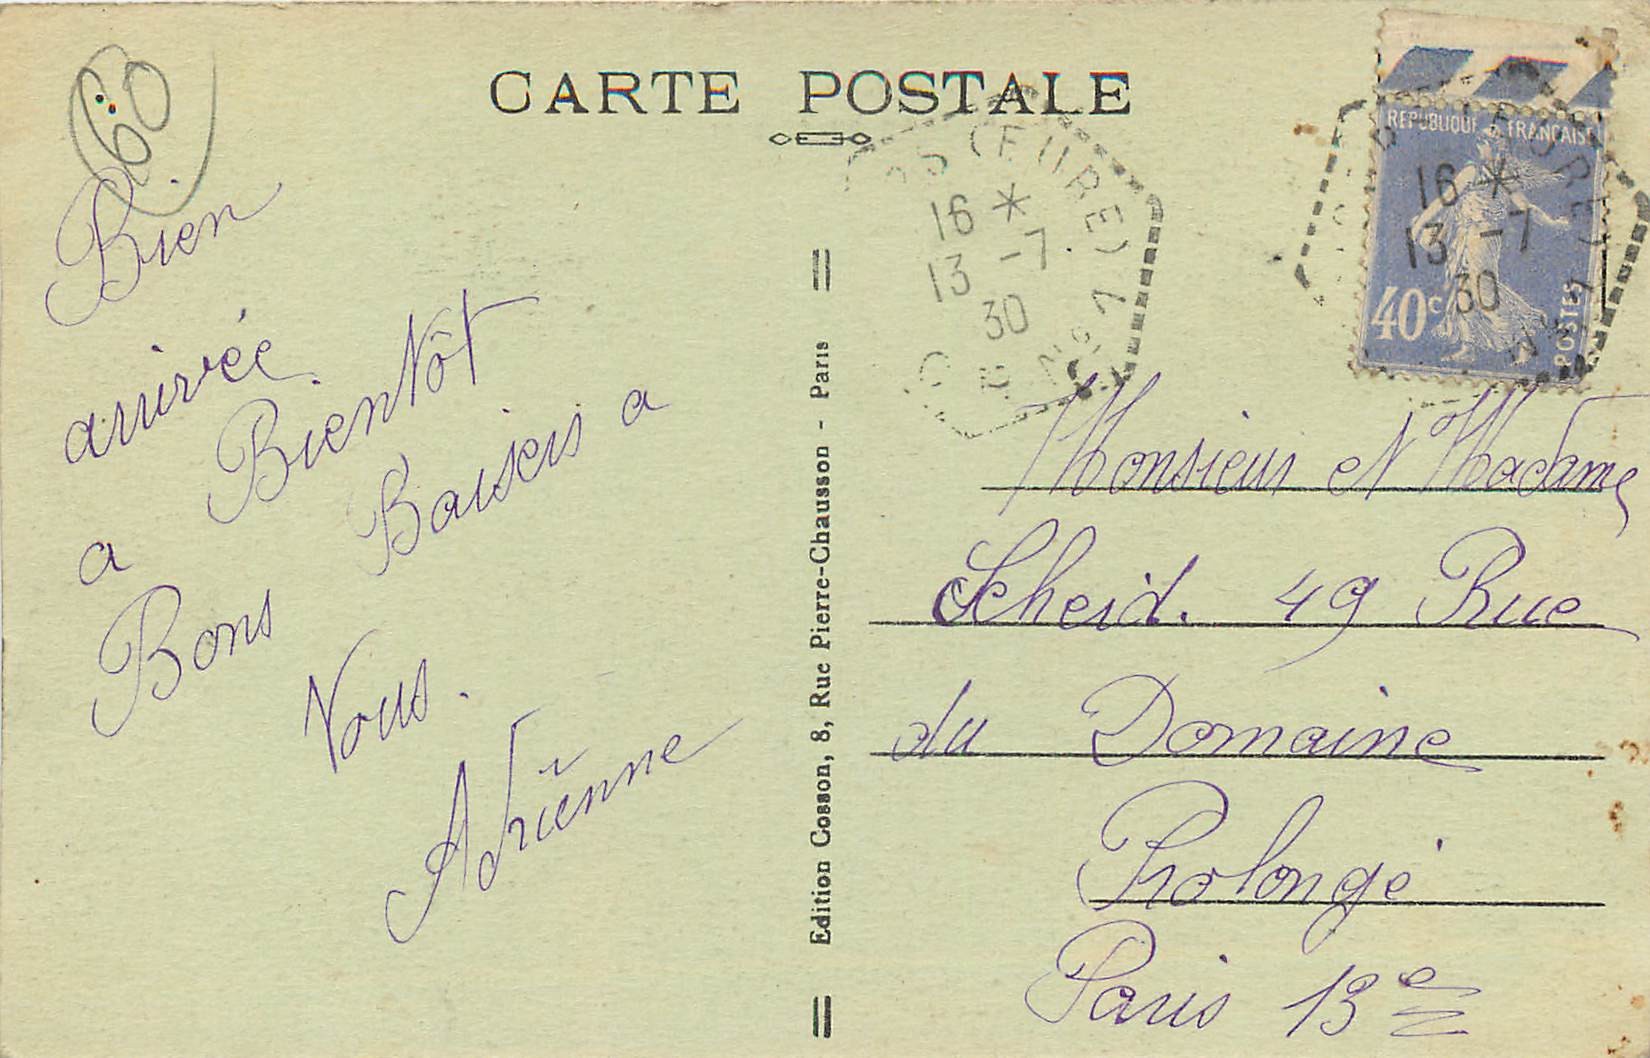 CARTE POSTALE
60
Bien
arrivée
a Bientôt
Bons Baisers a
Vous.
Adriênne
Edition Cosson, 8, Rue Pierre-Chausson - Paris
(EURE)
16 *
13 -7
30
REPUBLIQUE FRANÇAISE
16 *
13 -7
30
40c
POSTES
Monsieur et Madame
Scheid. 49 Rue
du Domaine
Prolongé
Paris 13e